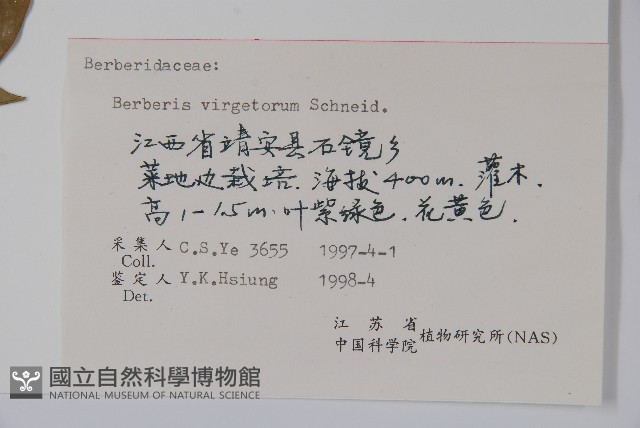 Berberidaceae:
Berberis virgetorum Schneid.
江西省靖安县石镜乡
菜地边栽培. 海拔400m. 灌木.
高1-1.5m. 叶紫绿色. 花黄色.
采集人 C.S.Ye 3655 1997-4-1
Coll.
鉴定人 Y.K.Hsiung 1998-4
Det.
江苏省
中国科学院 植物研究所(NAS)
國立自然科學博物館
NATIONAL MUSEUM OF NATURAL SCIENCE